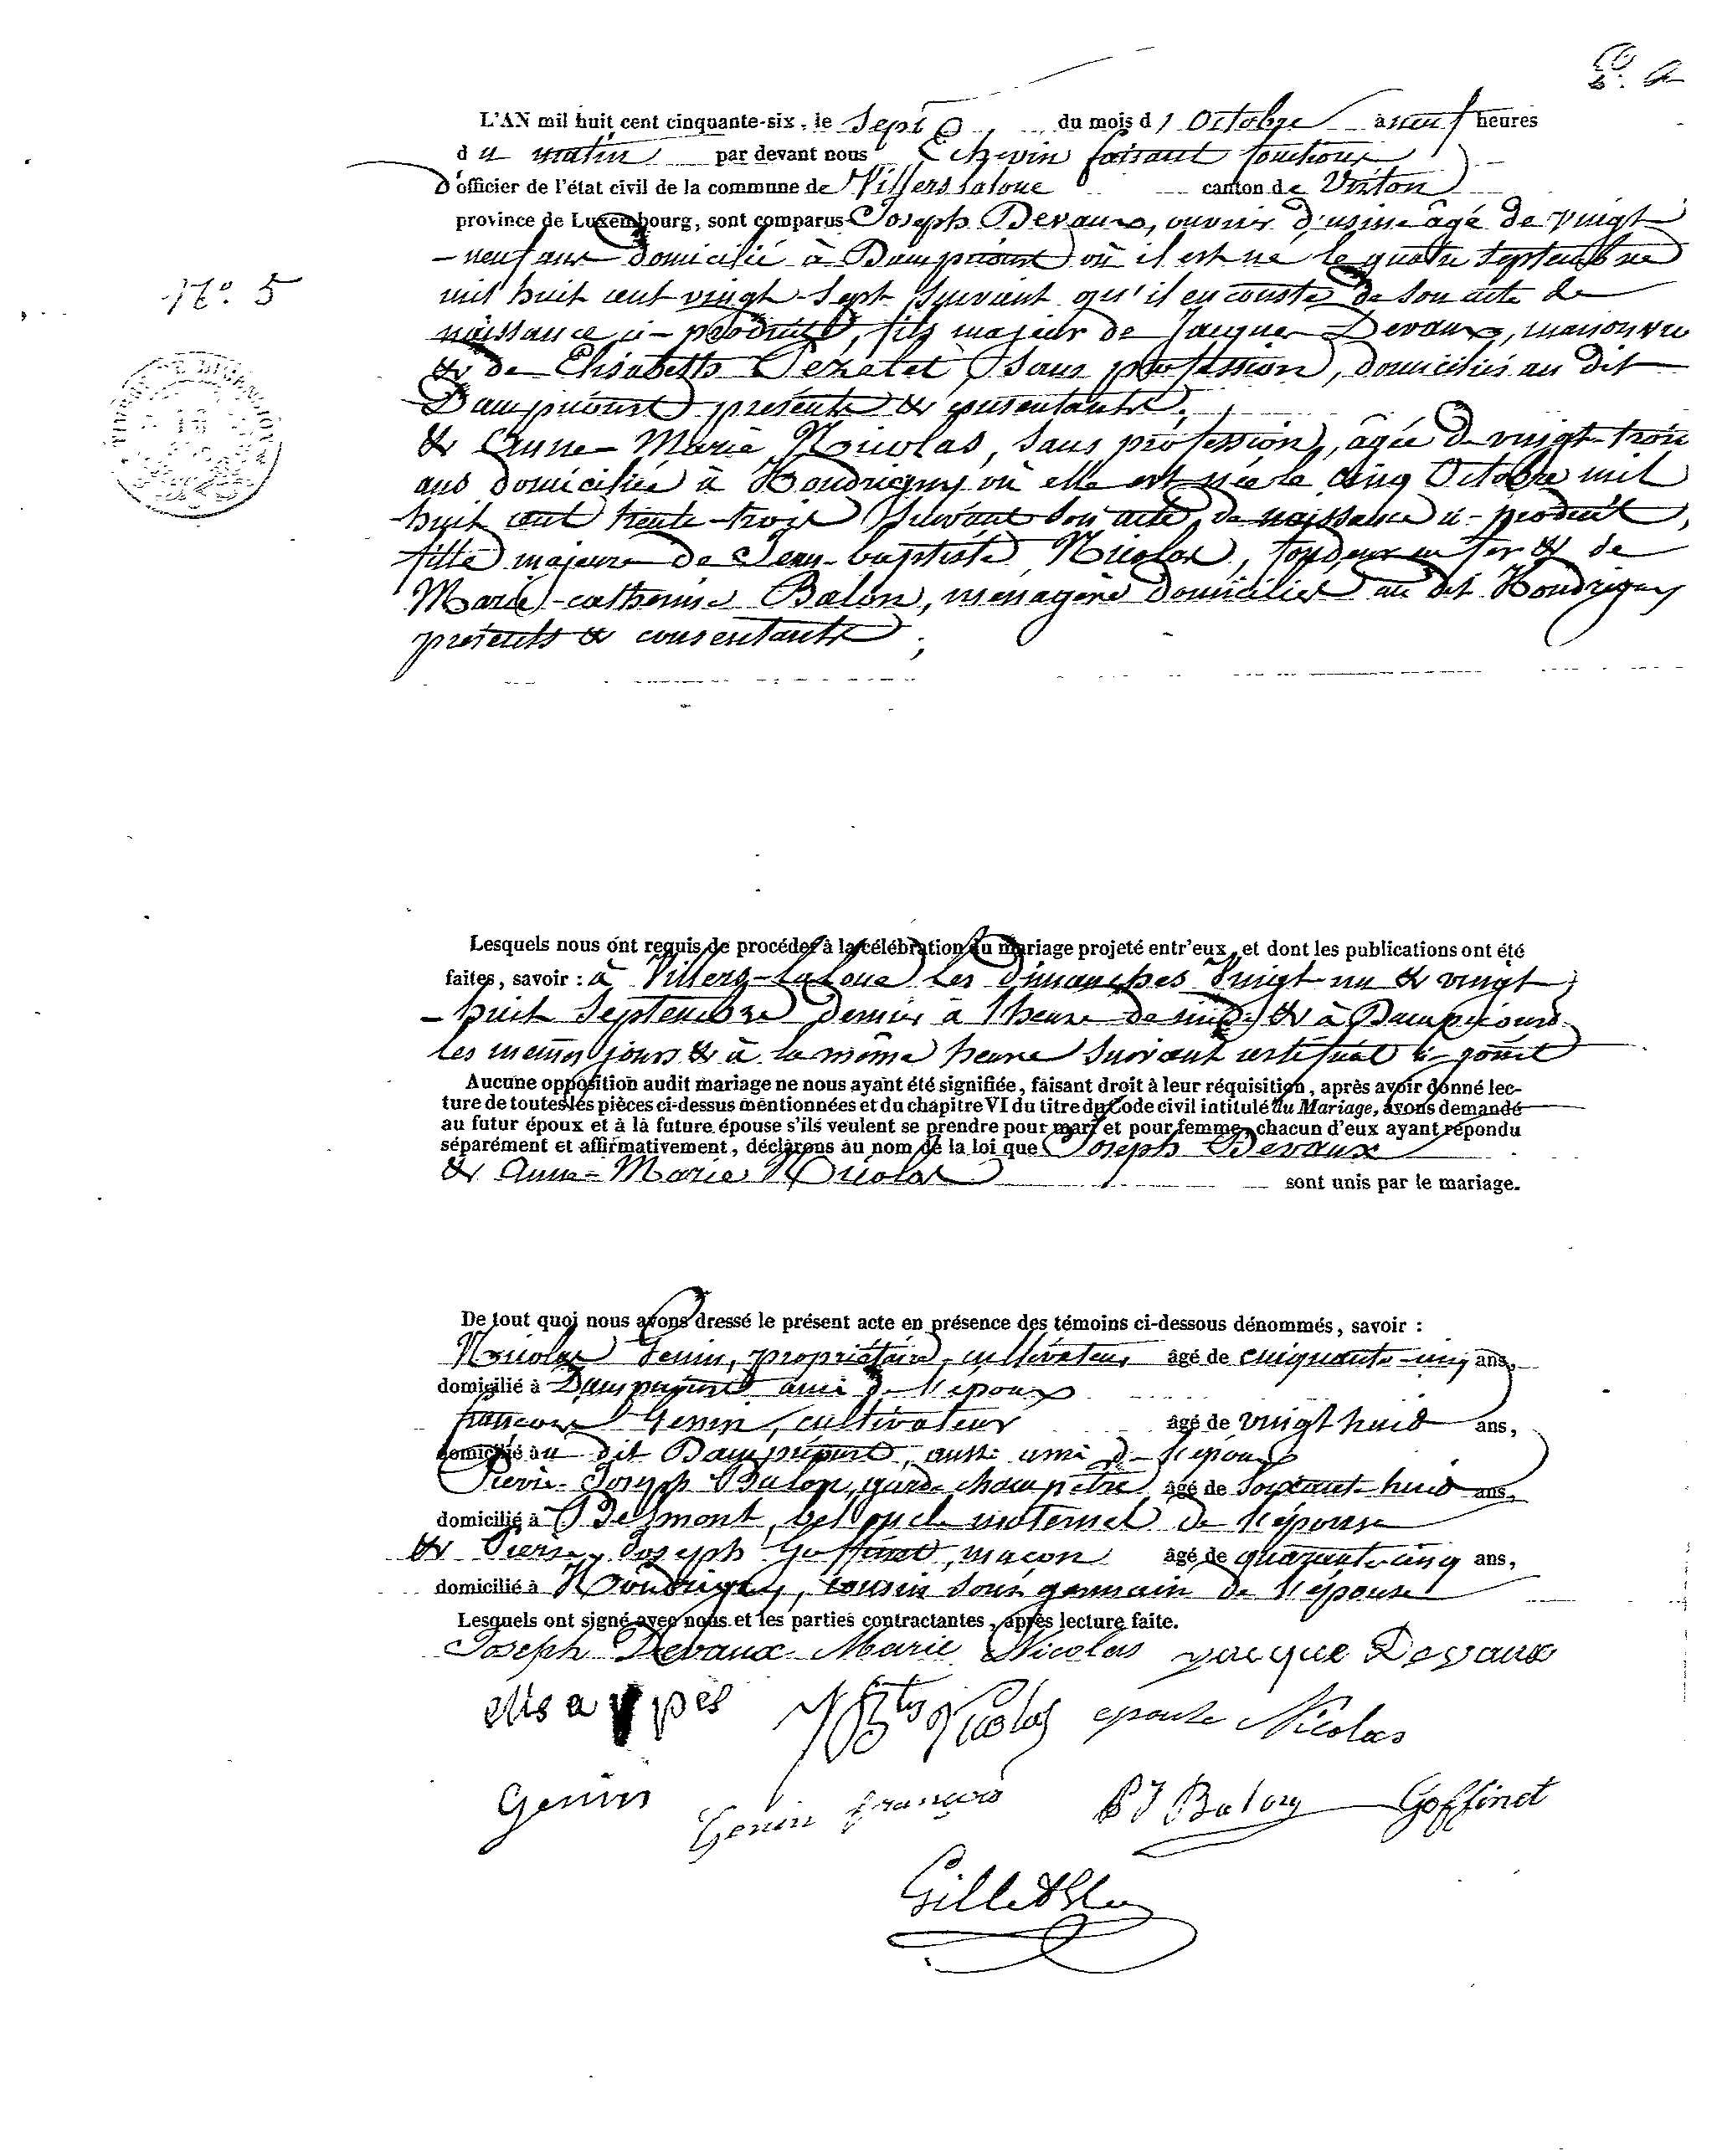 L'AN mil huit cent cinquante-six, le Sept du mois d'Octobre à neuf heures
du matin par devant nous Echevin faisant fonctions
d'officier de l'état civil de la commune de Villers laloue canton de Virton
province de Luxembourg, sont comparus Joseph Devaux, ouvrier d'usine âgé de vingt
-neuf ans domicilié à Dampicourt où il est né le quatre Septembre
mil huit cent vingt-Sept suivant qu'il en conste de son acte de
naissance ci-produit, fils majeur de Jacques Devaux, manoeuvre
& de Elisabeth sans profession, domiciliés au dit
Dampicourt présents & consentants;
& Anne-Marie Nicolas, sans profession, âgée de vingt-trois
ans domiciliée à Houdrigny où elle est née le cinq Octobre mil
huit cent trente-trois suivant son acte de naissance ci-produit,
fille majeure de Jean-baptiste Nicolas, fondeur en fer & de
Marie-catherine Balon, ménagère domiciliés au dit Houdrigny
présents & consentants;
N°. 5
Lesquels nous ont requis de procéder à la célébration du mariage projeté entr'eux, et dont les publications ont été
faites, savoir : à Villers-laloue les dimanches vingt un & vingt
-huit Septembre dernier à l'heure de midi & à Dampicourt
les mêmes jours & à la même heure suivant certificat ci-joint
Aucune opposition audit mariage ne nous ayant été signifiée, faisant droit à leur réquisition, après avoir donné lec-
ture de toutes les pièces ci-dessus mentionnées et du chapitre VI du titre du Code civil intitulé du Mariage, avons demandé
au futur époux et à là future épouse s'ils veulent se prendre pour mari et pour femme, chacun d'eux ayant répondu
séparément et affirmativement, déclarons au nom de la loi que Joseph Devaux
& Anne-Marie Nicolas sont unis par le mariage.
De tout quoi nous avons dressé le présent acte en présence des témoins ci-dessous dénommés, savoir :
Nicolas Genin, propriétaire, cultivateur âgé de cinquante-cinq ans,
domicilié à Dampicourt ami de l'époux
françois Genin, cultivateur âgé de vingt huit ans,
domicilié au dit Dampicourt, aussi ami de l'époux
Pierre-Joseph Balon, garde champêtre âgé de soixante-huit ans,
domicilié à Belmont, bel oncle maternel de l'épouse
& Pierre-Joseph Goffinet, maçon âgé de quarante-cinq ans,
domicilié à Houdrigny, cousin sous germain de l'épouse
Lesquels ont signé avec nous et les parties contractantes, après lecture faite.
Joseph Devaux Marie Nicolas jacque Devaux
Nicolas epouse Nicolas
Genin Genin françois P J Balon Goffinet